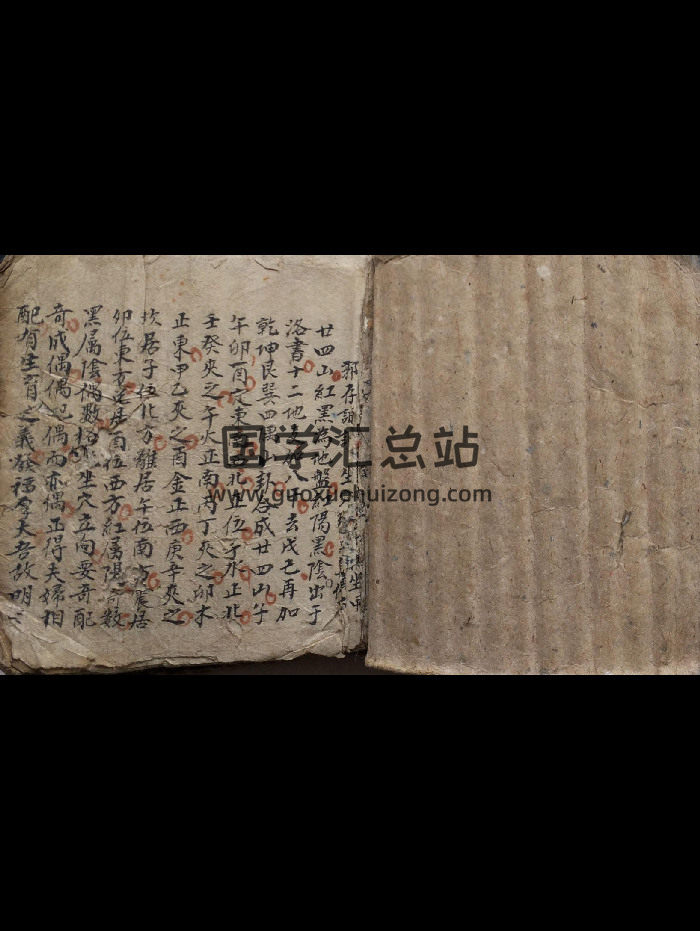 郭存
廿四山紅黑為地盤紅陽黑陰出于
洛書十二地加八干去戊己再加
乾坤艮巽四卦合成廿四山
午卯酉東北正位子水正北
壬癸夾之午火正南丙丁夾之卯木
正東甲乙夾之酉金正西庚辛夾之
坎居子位北方離居午位南方震居
卯位東方居酉位西方紅屬陽奇數
黑屬陰偶數坐穴立向要奇配
奇成偶偶起偶而亦偶正得夫婦相
配有生育之義發福故明
国学汇总站
www.guoxuehuizong.com